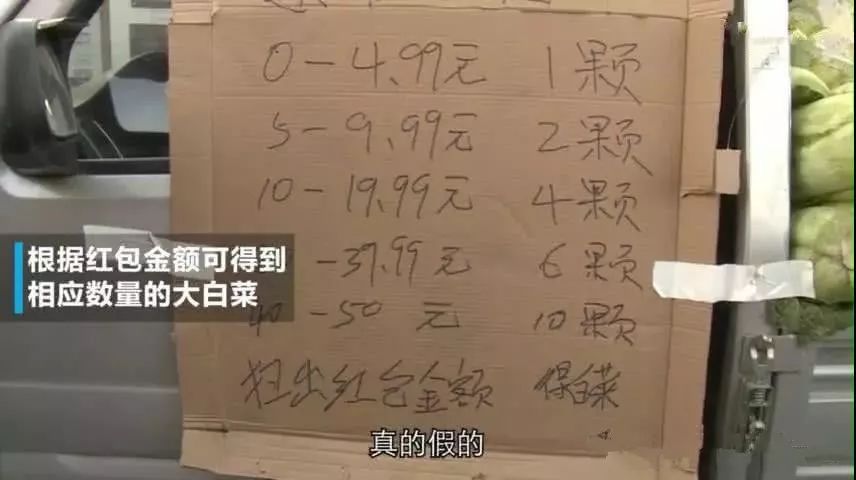 0-4.99元 1颗
5-9.99元 2颗
10-19.99元 4颗
-39.99元 6颗
40-50元 10颗
红包金额 白菜
根据红包金额可得到
相应数量的大白菜
真的假的